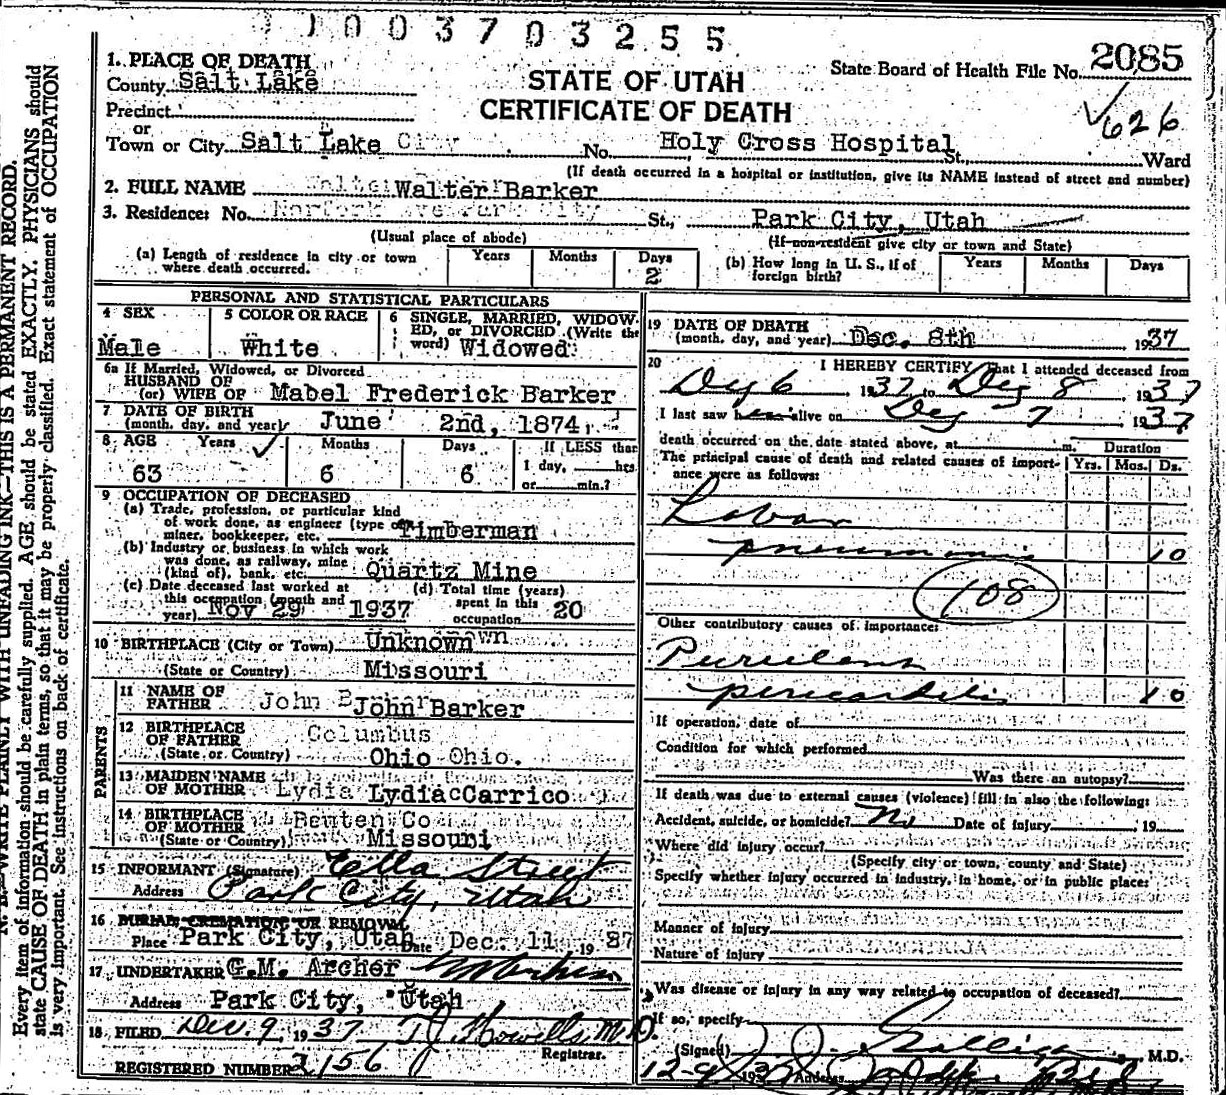 1003703255
2085
1. PLACE OF DEATH
County Salt Lake
STATE OF UTAH
CERTIFICATE OF DEATH
State Board of Health File No.
626
Precinct
or
Town or City Salt Lake City No. Holy Cross Hospital St., Ward
(If death occurred in a hospital or institution, give its NAME instead of street and number)
2. FULL NAME Walter Barker
3. Residence: No. Norfolk Ave Park City St., Park City, Utah
(Usual place of abode) (If non-resident give city or town and State)
(a) Length of residence in city or town where death occurred. Years Months Days 2
(b) How long in U. S., if of foreign birth? Years Months Days
PERSONAL AND STATISTICAL PARTICULARS
4 SEX Male
5 COLOR OR RACE White
6 SINGLE, MARRIED, WIDOWED, or DIVORCED (Write the word) Widowed
6a If Married, Widowed, or Divorced
HUSBAND OF
(or) WIFE OF Mabel Frederick Barker
7 DATE OF BIRTH
(month, day, and year) June 2nd, 1874
8 AGE Years Months Days If LESS than
63 6 6 1 day, hrs
or min.?
9 OCCUPATION OF DECEASED
(a) Trade, profession, or particular kind
of work done, as engineer (type of
miner, bookkeeper, etc. Timberman
(b) Industry or business in which work
was done, as railway, mine
(kind of), bank, etc. Quartz Mine
(c) Date deceased last worked at
this occupation (month and
year) Nov 29 1937
(d) Total time (years)
spent in this
occupation 20
10 BIRTHPLACE (City or Town) Unknown
(State or Country) Missouri
PARENTS
11 NAME OF
FATHER John Barker
12 BIRTHPLACE
OF FATHER Columbus
(State or Country) Ohio Ohio.
13 MAIDEN NAME
OF MOTHER Lydia Lydia Carrico
14 BIRTHPLACE
OF MOTHER
(State or Country) Missouri
15 INFORMANT (Signature) Ella Street
Address Park City, Utah
16 BURIAL CREMATION OR REMOVAL
Place Park City, Utah Date Dec. 11 1937
17 UNDERTAKER G.M. Archer
Address Park City, Utah
18 FILED Dec. 9, 1937 T J Howells M.D.
Registrar.
REGISTERED NUMBER 2156
19 DATE OF DEATH
(month, day, and year) Dec. 8th 1937
20 I HEREBY CERTIFY that I attended deceased from
Dec 6 1937 to Dec 8 1937
I last saw h alive on Dec 7 1937
death occurred on the date stated above, at m. Duration
The principal cause of death and related causes of importance were as follows: Yrs. Mos. Ds.
Lobar
pneumonia 10
108
Other contributory causes of importance:
Purulent
pericarditis 10
If operation, date of
Condition for which performed
Was there an autopsy?
If death was due to external causes (violence) fill in also the following:
Accident, suicide, or homicide? No Date of injury , 19
Where did injury occur?
(Specify city or town, county and State)
Specify whether injury occurred in industry, in home, or in public place:
Manner of injury
Nature of injury
Was disease or injury in any way related to occupation of deceased?
If so, specify
(Signed) M.D.
12-9 1937 Address
N. B.—WRITE PLAINLY WITH UNFADING INK—THIS IS A PERMANENT RECORD.
Every item of information should be carefully supplied. AGE should be stated EXACTLY. PHYSICIANS should
state CAUSE OF DEATH in plain terms, so that it may be properly classified. Exact statement of OCCUPATION
is very important. See instructions on back of certificate.